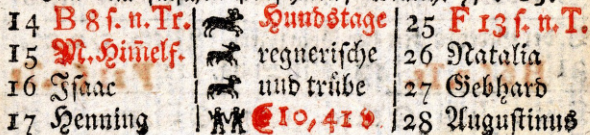 14 B 8 ſ. n. Tr. Hundstage 25 F 13 ſ. n. T.
15 M. Him̃elf. regneriſche 26 Natalia
16 Iſaac und trübe 27 Gebhard
17 Henning 10, 41 28 Auguſtinus